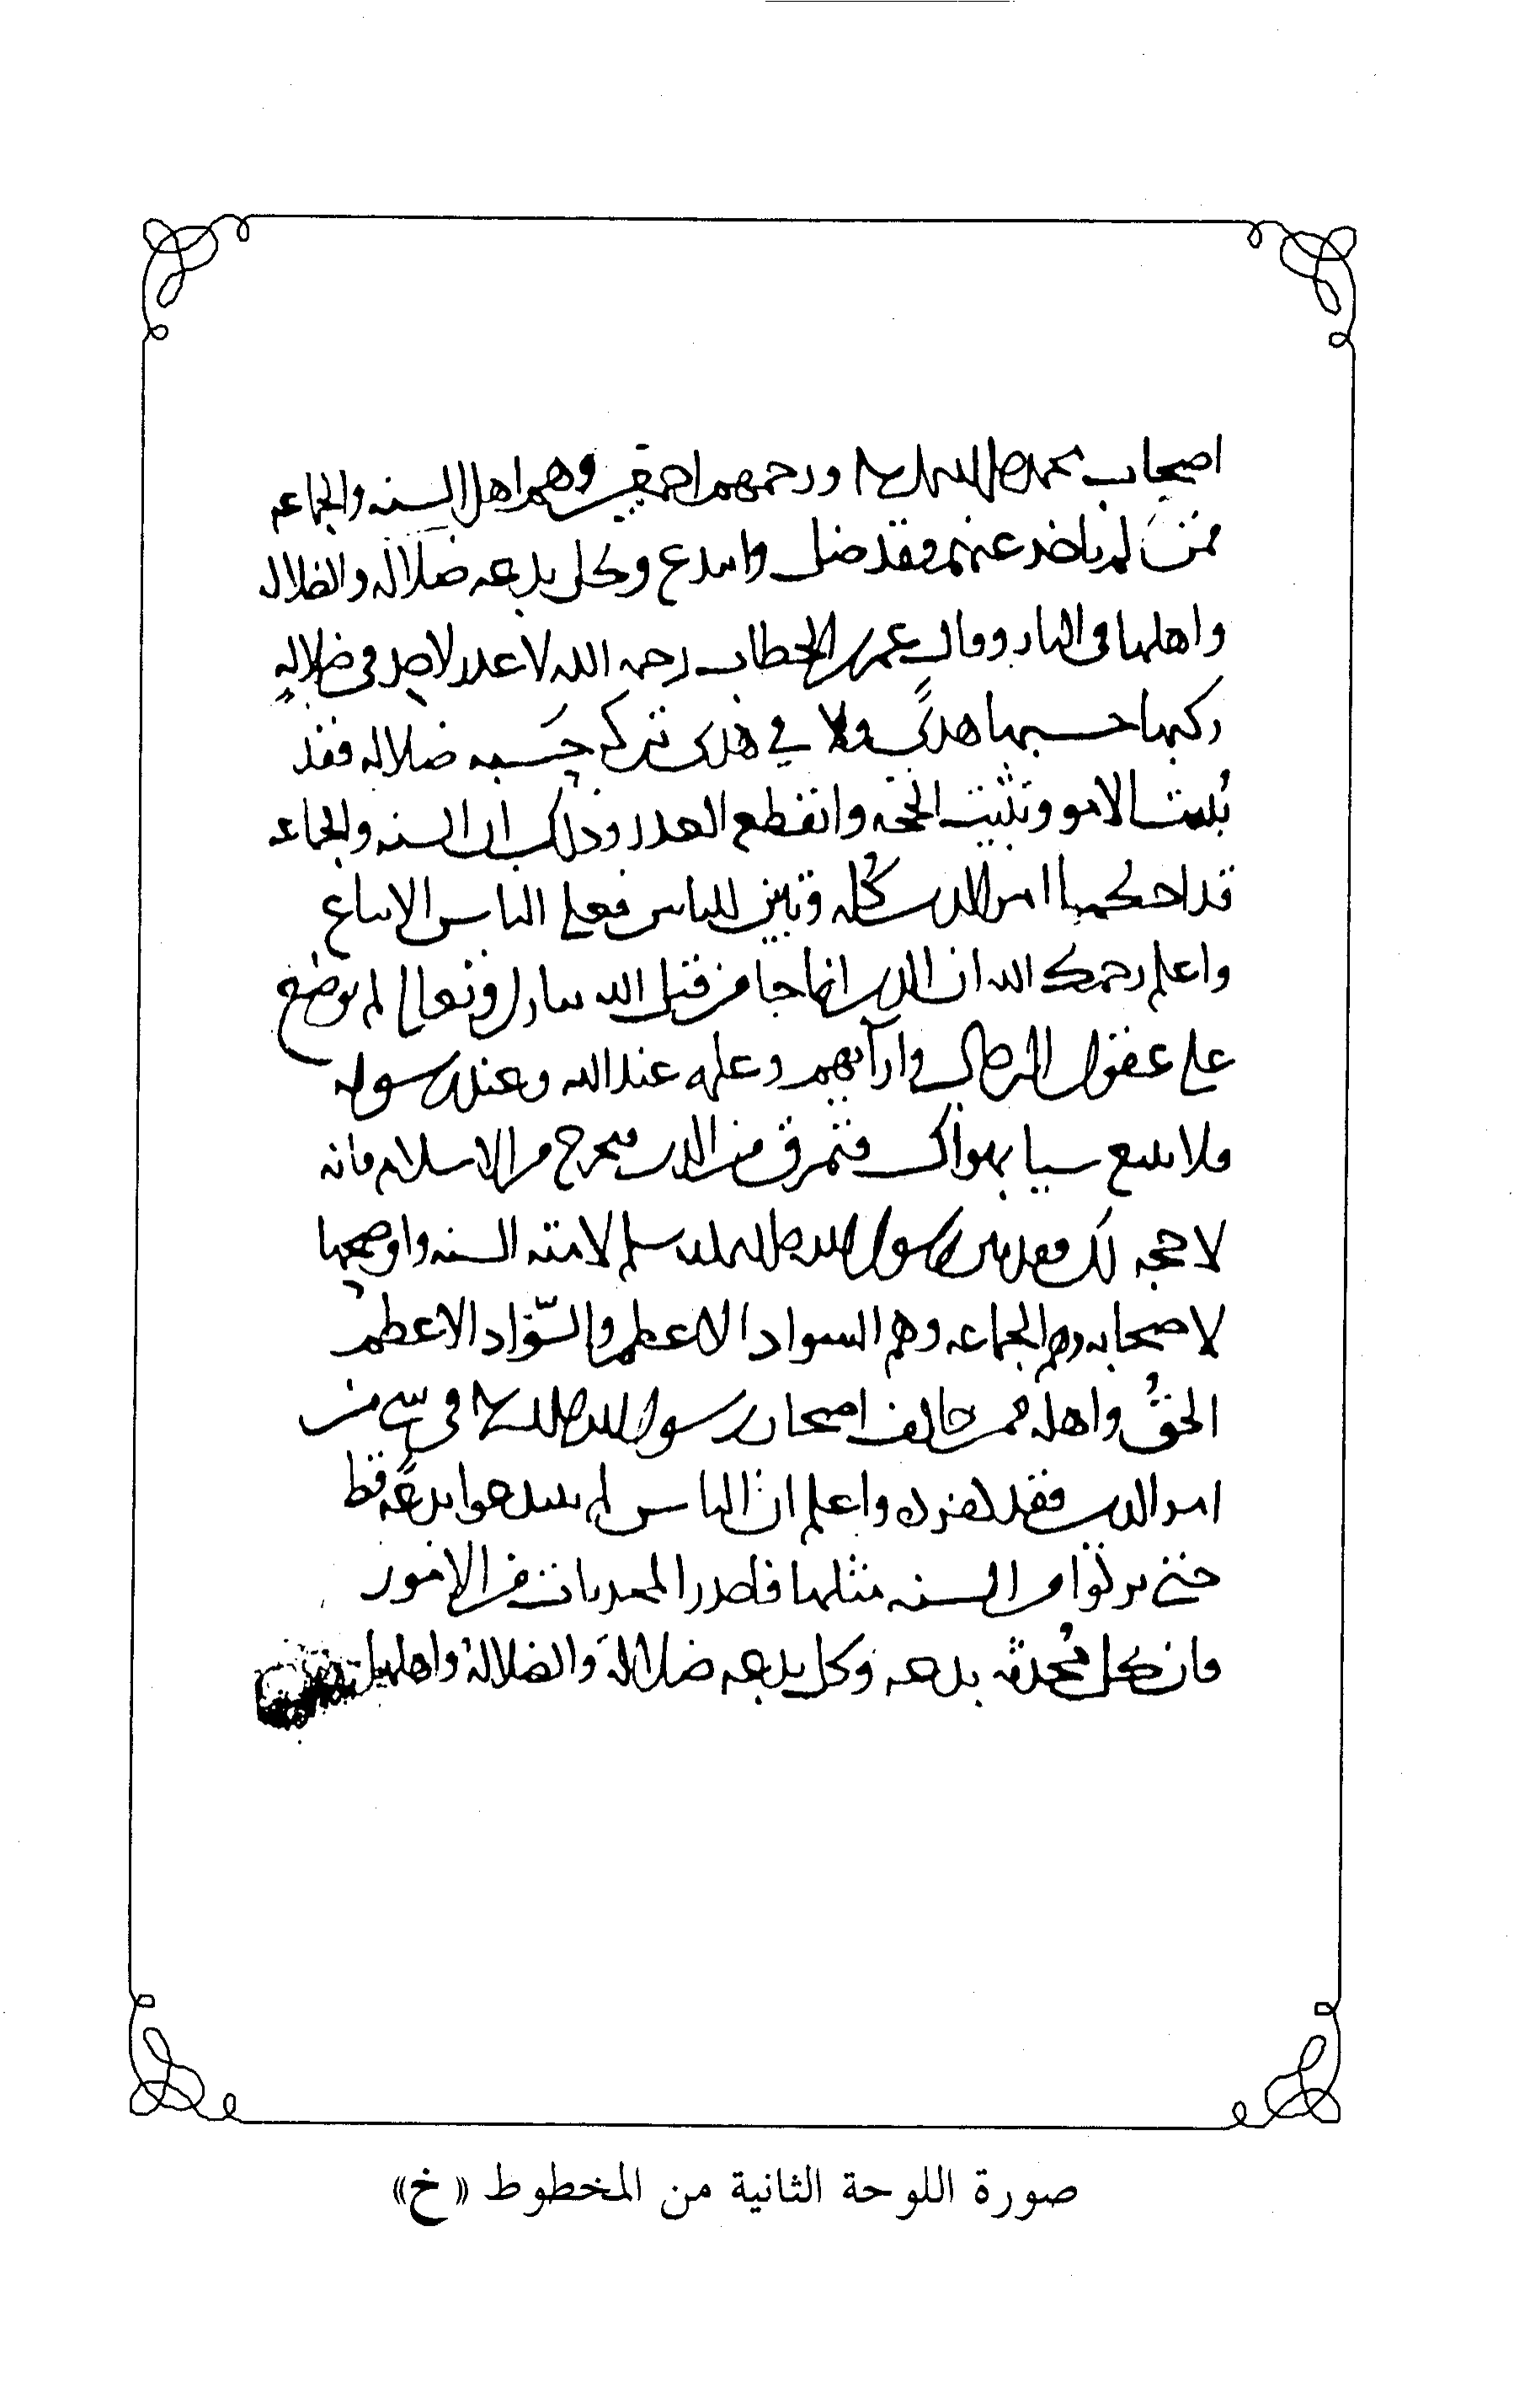 اصحاب محمد صلى الله عليه وسلم ورحمهم اجمعين وهم اهل السنه والجماعه
فمن لم ياخذ عنهم فقد ضل وابتدع وكل بدعه ضلاله والضلاله
واهلها في النار وقال عمر بن الخطاب رحمه الله لا عذر لاحد في ضلاله
ركبها حسبها هدًى ولا في هدى تركه حَسبه ضلاله فقد
بُينت الامور وتثبت الحجه وانقطع العذر وذلك ان السنه والجماعه
قد احكما امر الدين كُله وتبين للناس فعلى الناس الاتباع
واعلم رحمك الله ان الدين انما جا من قبل الله تبارك وتعالى لم يوضع
على عقول الرجال وارآيهم وعلمه عند الله وعند رسوله
فلا تتبع شيا بهواك فتمرق من الدين فتخرج من الاسلام فانه
لا حجه لك فقد بين رسول الله صلى الله عليه وسلم لامته السنه واوضحها
لاصحابه وهم الجماعه وهم السواد الاعظم والسّواد الاعظم
الحقُ واهله فمن خالف اصحاب رسول الله صلى الله عليه وسلم في شي من
امر الدين فقد كفر واعلم ان الناس لم يبتدعوا بدعةً قط
حتى تركوا من السنه مثلها فاحذر المحدثات من الامور
فان كل مُحدثه بدعه وكل بدعه ضلالة والضلالة واهلها
صورة اللوحة الثانية من المخطوط «خ»